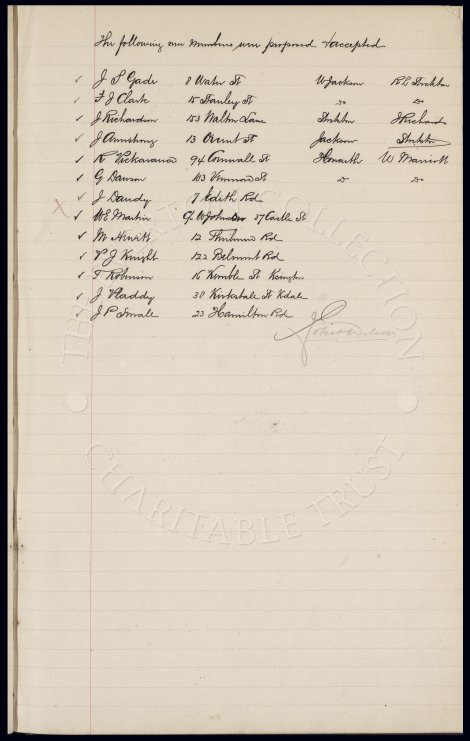 The following new members were proposed & accepted
✓ J S Gade 8 Water St W Jackson R L Stockton
✓ F J Clark 15 Stanley St do do
✓ J Richardson 153 Walton Lane Stockton J Richards
✓ J Armstrong 13 St Jackson Stockton
✓ R Vickavance 94 Cornwall St Howarth W Marriott
✓ G Dawson 103 St do do
✓ J Dandy 7 Edith Rd
X ✓ W E Martin c/o W Johnson 37 Castle St
✓ M Hewitt 12 Rd
✓ V J Knight 122 Belmont Rd
✓ T Robinson 16 Wimble St Kensington
✓ J Pladdy 38 Kirkstale St Kdale
✓ J P Smale 23 Hamilton Rd
THE COLLECTION
CHARITABLE TRUST